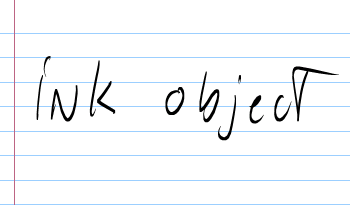 ink object